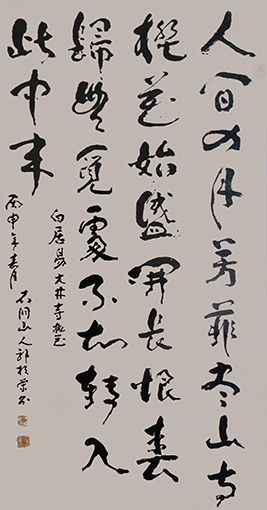 人間四月芳菲盡山寺
桃花始盛開長恨春
歸無覓處不知轉入
此中来
白居易大林寺桃花
丙申年春月
山人